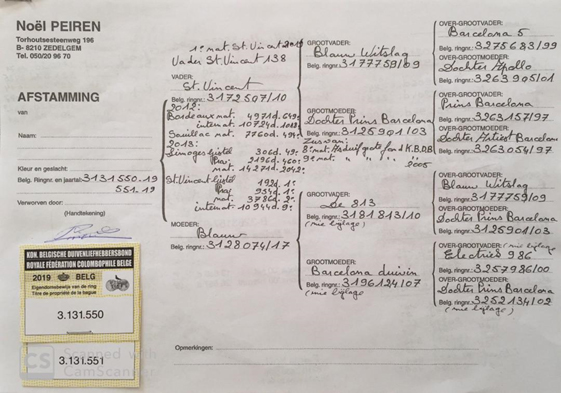 Noël PEIREN
Torhoutsesteenweg 196
B- 8210 ZEDELGEM
Tel. 050/20 96 70
AFSTAMMING
van
Naam:
Kleur en geslacht:
Belg. Ringnr. en jaartal: 3131550.19
551.19
Verworven door:
(Handtekening)
KON. BELGISCHE DUIVENLIEFHEBBERSBOND
ROYALE FÉDÉRATION COLOMBOPHILE BELGE
2019 BELG
Eigendomsbewijs van de ring
Titre de propriété de la bague
3.131.550
3.131.551
CS Scanned with
CamScanner
1e nat. St. Vincent
Vader St. Vincent 138
VADER:
St. Vincent
Belg. ringnr.: 3172507/10
2012:
Bordeaux nat. 4971d. 649e
internat. 10724d.
Souillac nat. 7760d. 494e
2013:
Limoges 306d. 4e
Prov. 2196d. 460e
nat. 14271d. 2042e
St. Vincent 192d. 1e
Prov 954d. 1e
nat. 3786d. 2e
internat. 10944d. 9e
MOEDER:
Blauw
Belg. ringnr.: 3128074/17
GROOTVADER:
Blauw Witslag
Belg. ringnr.: 3177759/09
GROOTMOEDER:
Dochter Prins Barcelona
Belg. ringnr.: 3125901/03
Zus van:
8e nat. Asduif grote fond K.B.D.B.
9e nat. " " " " 2005
GROOTVADER:
De 813
Belg. ringnr.: 3181813/10
(zie bijlage)
GROOTMOEDER:
Barcelona duivin
Belg. ringnr.: 3196124/07
(zie bijlage)
OVER-GROOTVADER:
Barcelona 5
Belg. ringnr.: 3275683/99
OVER-GROOTMOEDER:
Dochter Apollo
Belg. ringnr.: 3263905/01
OVER-GROOTVADER:
Prins Barcelona
Belg. ringnr.: 3263157/97
OVER-GROOTMOEDER:
Dochter Attiest Barcelona
Belg. ringnr.: 3263054/97
OVER-GROOTVADER:
Blauw Witslag
Belg. ringnr.: 3177759/09
OVER-GROOTMOEDER:
Dochter Prins Barcelona
Belg. ringnr.: 3125901/03
OVER-GROOTVADER: (zie bijlage)
Electriek 986
Belg. ringnr.: 3257986/00
OVER-GROOTMOEDER:
Dochter Prins Barcelona
Belg. ringnr.: 3252134/02
(zie bijlage)
Opmerkingen: